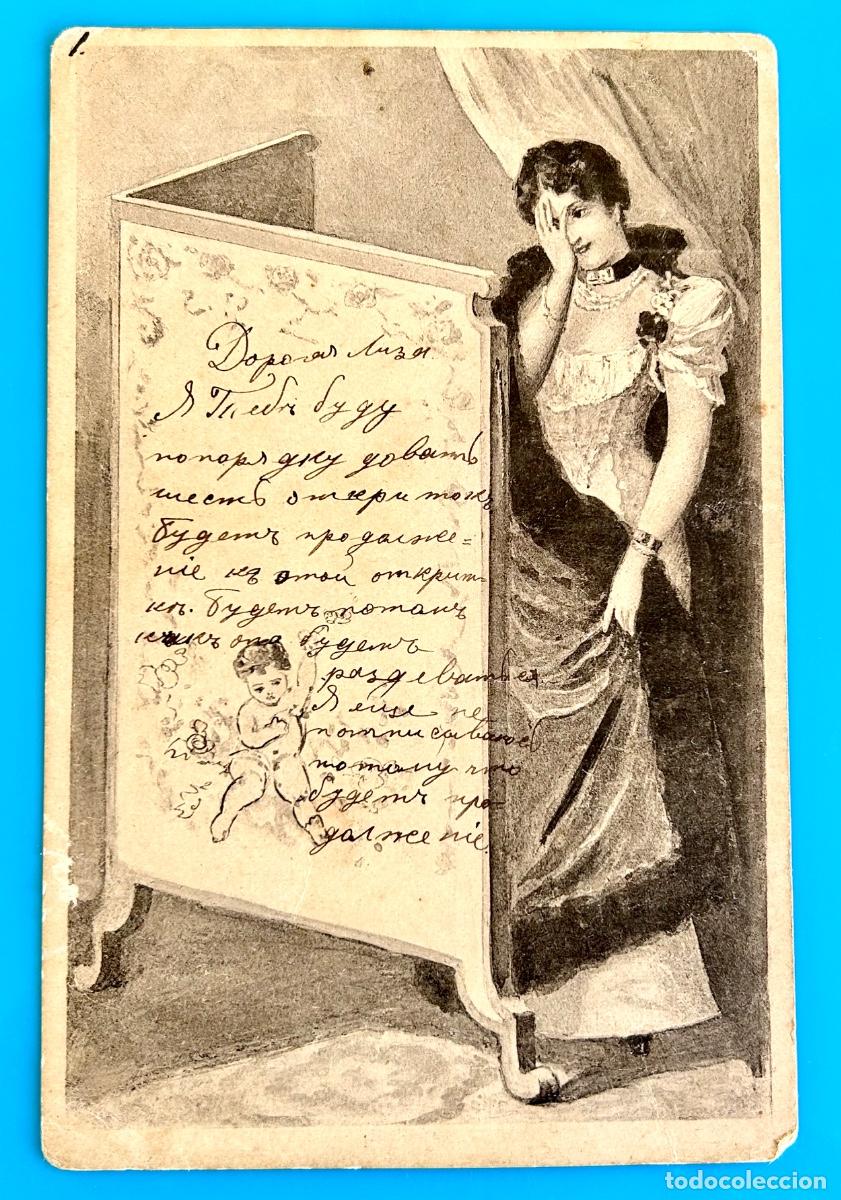 1.
Дорогая Лиза
Я Тебѣ буду
попорядку довать
шесть открытокъ
будетъ продолже=
ніе къ этой открыт-
кѣ. Будетъ потомъ
какъ она будетъ
раздеваться
Я еще не
потписываюсь
потому что
будетъ про-
должение.
todocoleccion